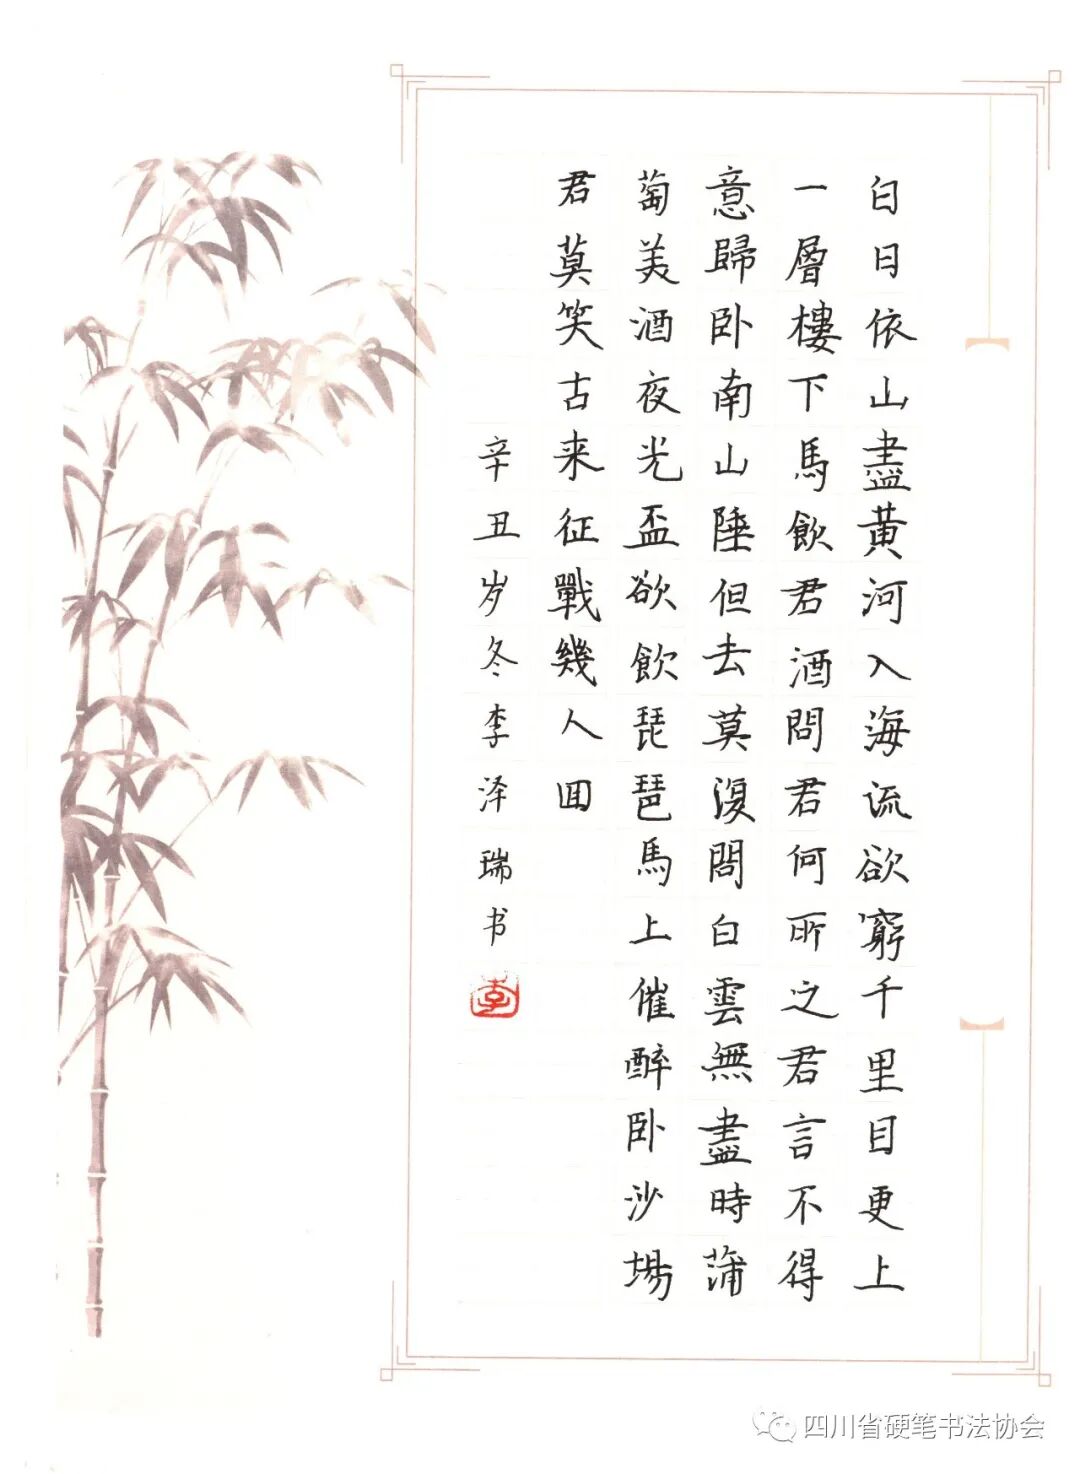 白日依山盡黄河入海流欲窮千里目更上
一層樓下馬飲君酒問君何所之君言不得
意歸卧南山陲但去莫復問白雲無盡時蒲
萄美酒夜光盃欲飲琵琶馬上催醉卧沙場
君莫笑古来征戰幾人囬
辛丑岁冬李泽瑞书
李
四川省硬笔书法协会